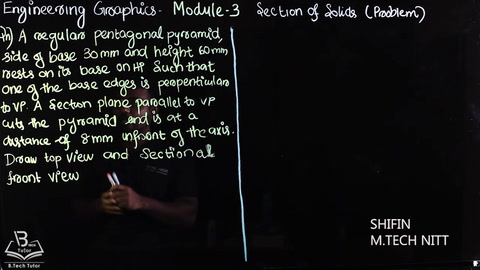 Engineering Graphics. Module-3 Section of Solids (Problem)
A regular pentagonal pyramid,
side of base 30mm and height 60mm
rests on its base on HP such that
one of the base edges is perpenticular
to VP. A section plane parallel to VP
cuts the pyramid and is at a
distance of 8mm infront of the axis.
Draw top view and sectional
front view
SHIFIN
M.TECH NITT
B.Tech
Tutor
B.Tech Tutor